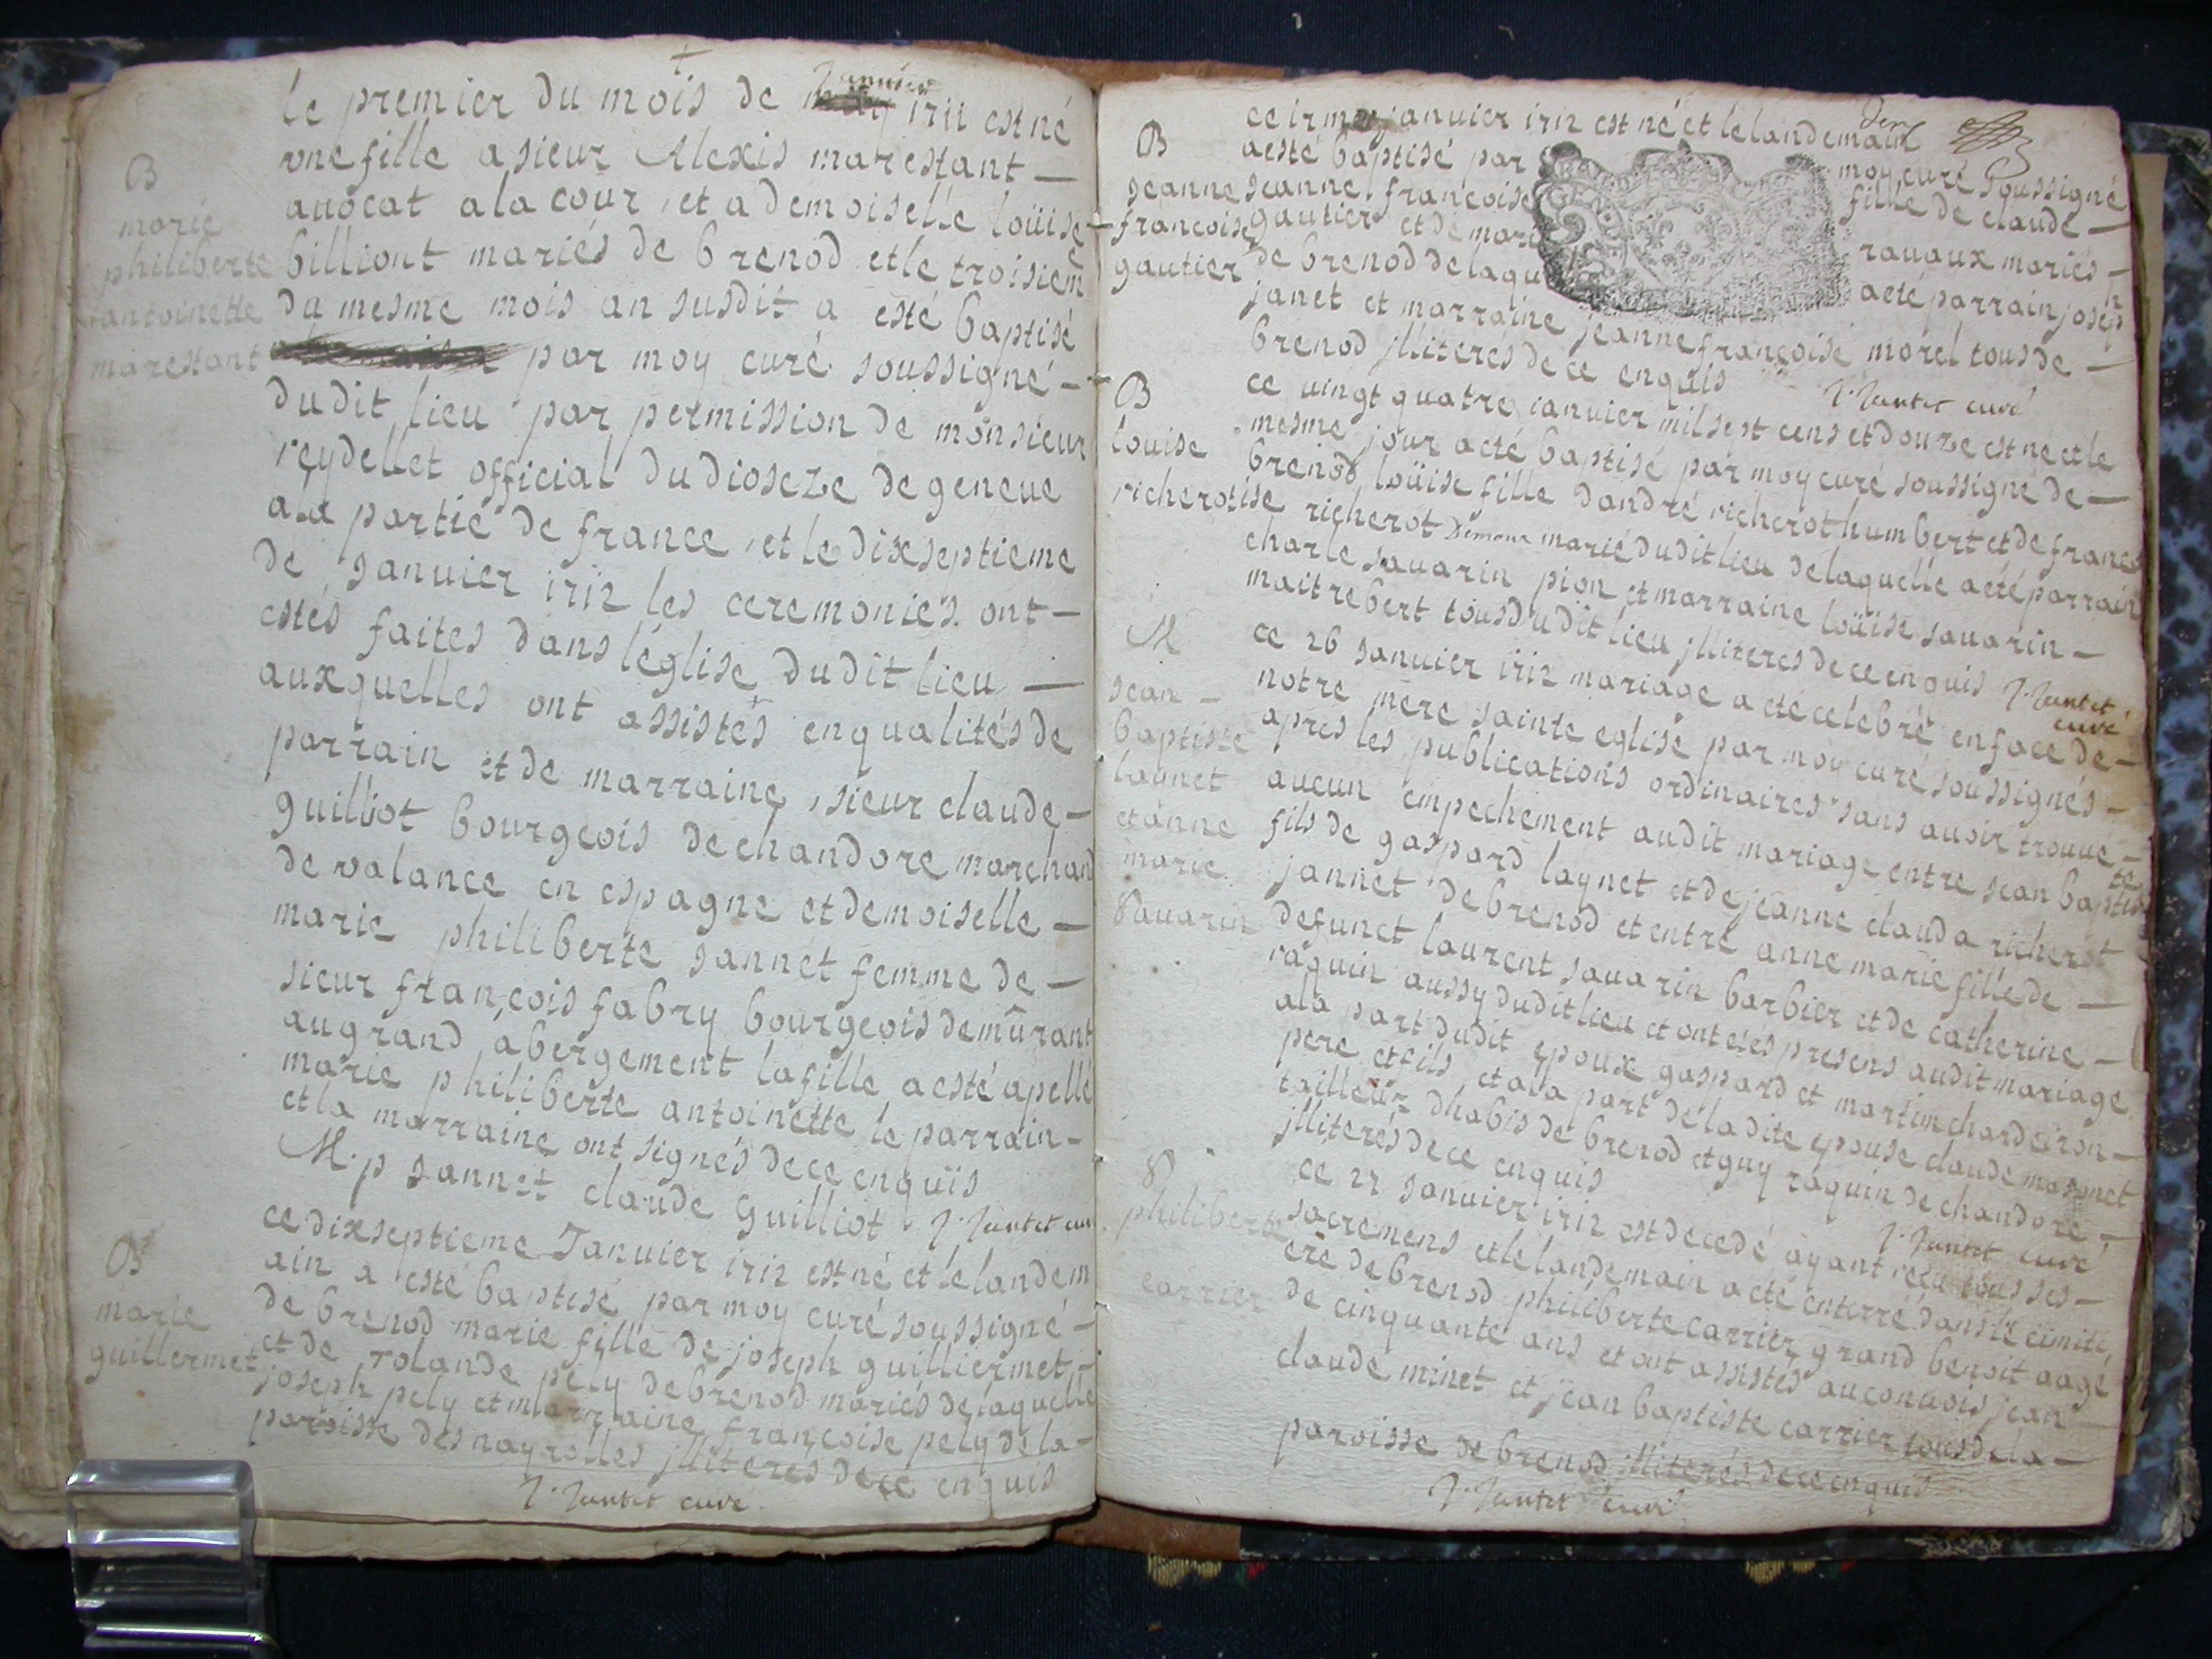 le premier du mois de Januier 1712 est né
vne fille a sieur Alexis marestant —
auocat a la cour, et a demoiselle loüise
billiont mariés de brenod et le troisiem
du mesme mois an susdit a esté baptisé
par moy curé soussigné —
dudit lieu par permission de monsieur
reydellet official du dioseze de geneue
ala partie de france, et le dixseptieme
de Januier 1712 les ceremonies ont —
estés faites dans l'église dudit lieu —
auxquelles ont assistés enqualités de
parrain et de marraine, sieur claude —
guilliot bourgeois de chandore marchand
de valance en espagne et demoiselle —
marie philiberte Jannet femme de —
sieur françois fabry bourgeois demûrant
au grand abergement la fille a esté apellé
marie philiberte antoinette le parrain —
et la marraine ont signés de ce enquis
M. p Jannet claude Guilliot J. Juntet cur
B
marie
philiberte
antoinette
marestant
ce dixseptieme Januier 1712 est né et le landem
ain a esté baptisé par moy curé soussigné —
de brenod marie fille de joseph guilliermet
et de rolande pely de brenod mariés de laquelle
joseph pely et marraine françoise pely de la —
paroisse des nayrolles jlliteres de ce enquis
J. Juntet curé
B
marie
guillermet
ce 17 januier 1712 est né et le landemain
aesté baptisé par moy curé soussigné
Jeanne françoise fille de claude —
gautier et de mari rauaux mariés —
de brenod de laqu aeté parrain joseph
janet et marraine jeanne françoise morel tous de —
brenod jlliteres de ce enquis J. Juntet curé
B
Jeanne
francoise
gautier
ce uingt quatre ianuier mil sept cens et douze est né et le
mesme jour aeté baptisé par moy curé soussigné de —
brenod, loüise fille dandré richerot humbert et de franc
oise richerot marié dudit lieu de laquelle aeté parrain
charle sauarin pion et marraine loüise sauarin —
maitrebert tous dudit lieu jlliteres de ce enquis J. Juntet
curé
B
louise
richerot
ce 26 Januier 1712 mariage a eté celebré en face de —
notre mere sainte eglise par moy curé soussignés —
apres les publications ordinaires sans auoir trouué —
aucun empechement audit mariage entre Jean baptiste
fils de gaspard laynet et de jeanne clauda richerot
jannet de brenod et entre anne marie fille de —
defunct laurent sauarin barbier et de catherine —
raquin aussy dudit lieu et ont etés presens audit mariage
ala part dudit epoux gaspard et martin chardeiron —
pere et fils, et ala part de ladite epouse claude
tailleur dhabis de brenod et guy raquin de chandore —
jlliterés de ce enquis J. Juntet curé
M
Jean —
baptiste
laynet
et anne
marie
Sauarin
ce 27 Januier 1712 est decedé ayant reçu tous ses —
sacremens et le landemain a eté enterré dans le cimiti
ere de brenod philiberte carrier grand benoit aagé
de cinquante ans et ont assistés au conuois jean —
claude minet et jean baptiste carrier tous de la —
paroisse de brenod jlliterés de ce enquis
J. Juntet curé
S
philiberte
carrier